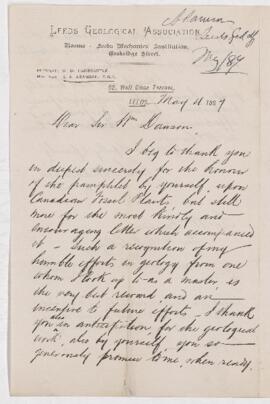 Adamson
Leeds Geol Ass
May/89
LEEDS GEOLOGICAL ASSOCIATION,
Rooms - Leeds Mechanics' Institution,
Cookridge Street.
PRESIDENT:
HON. SEC. S. A. ADAMSON, F.G.S.
52, Well Close Terrace,
LEEDS, May 11 1889
Dear Sir Wm Dawson.
I beg to thank you
in deepest sincerity, for the honour
of the pamphlet by yourself, upon
Canadian Fossil Plants, but still
more for the most kindly and
encouraging letter which accompanied
it - Such a recognition of my
humble efforts in geology from one
whom I look up to as a master, is
the very best reward, and an
incentive to future efforts. I thank
you also in anticipation, for the geological
work, also by yourself, you so
generously promise to me, when ready.